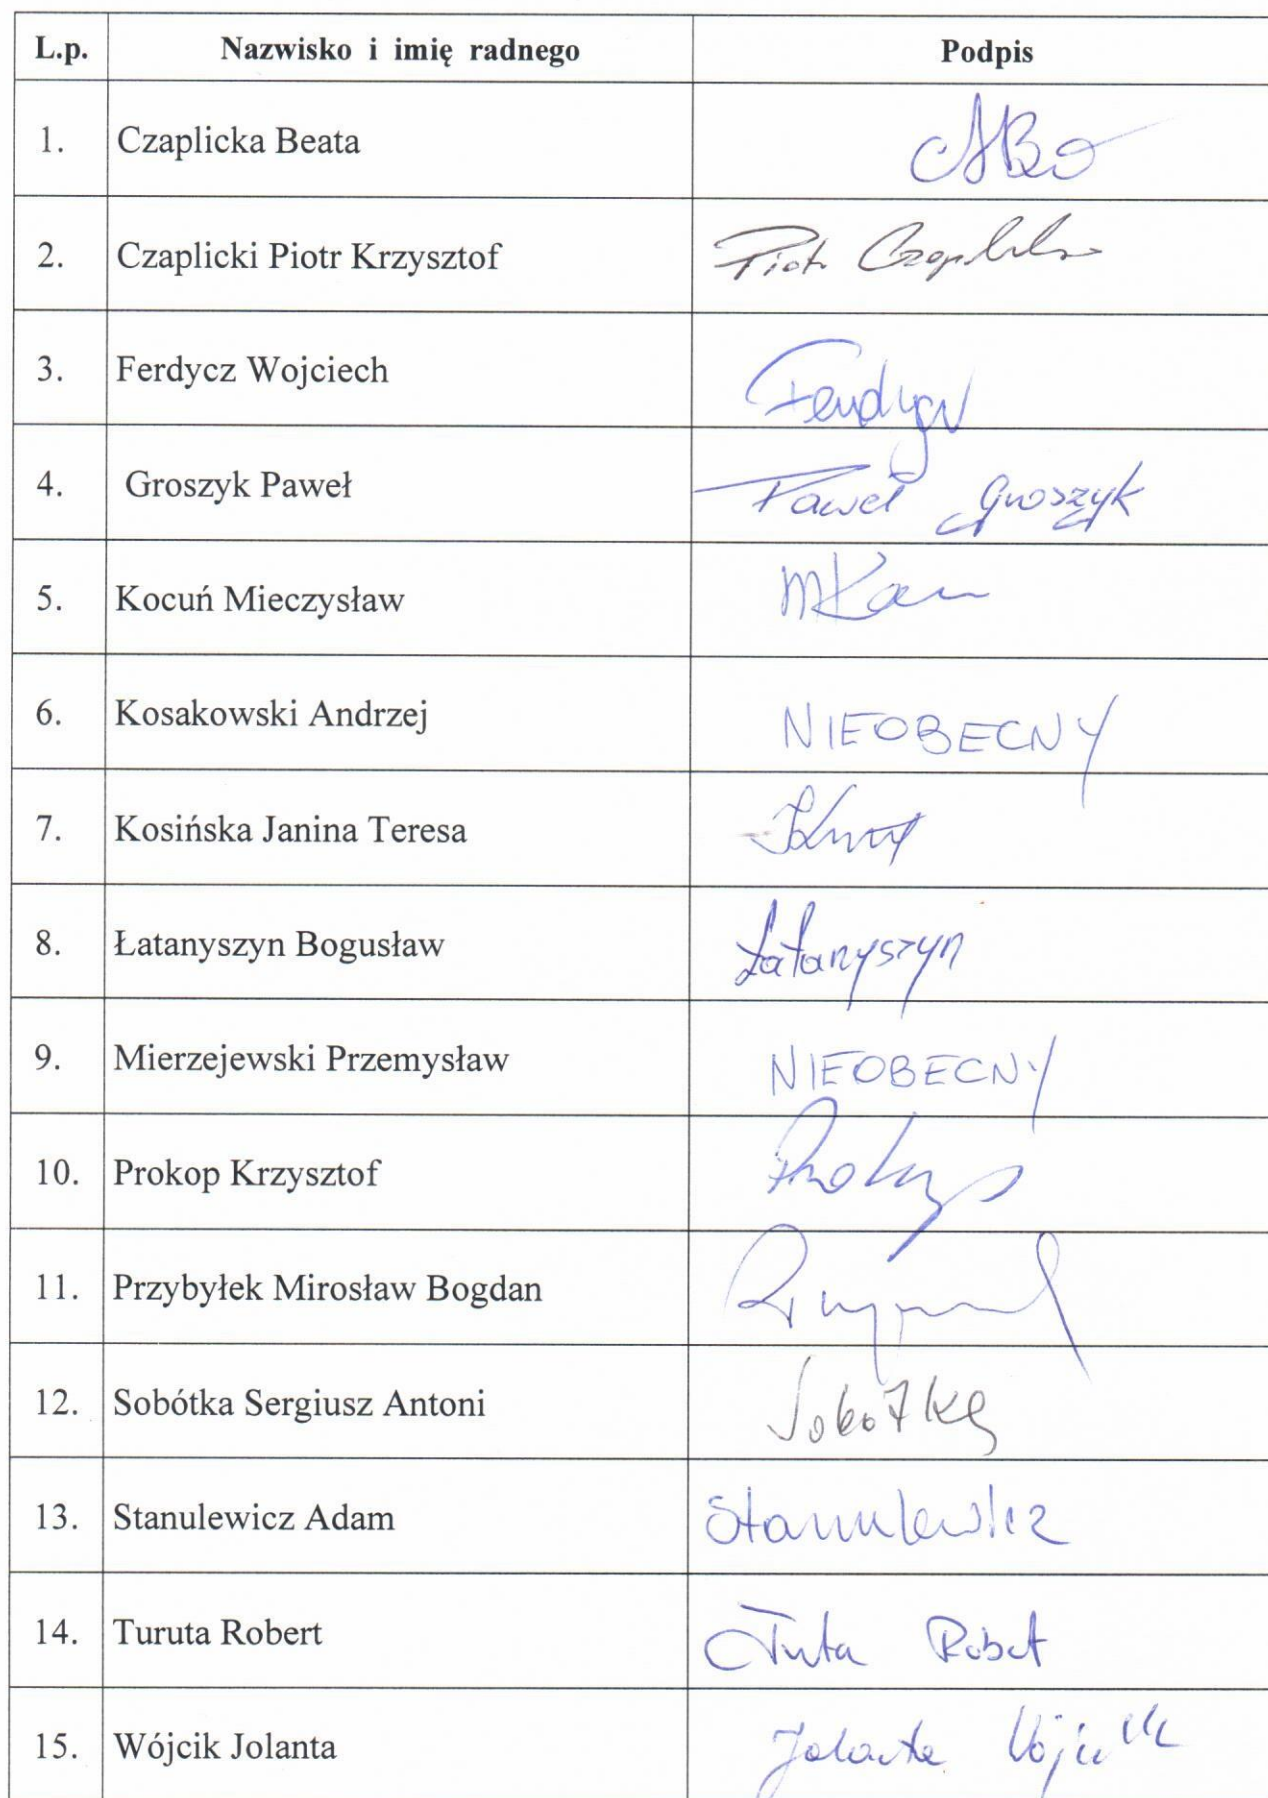 L.p. Nazwisko i imię radnego Podpis
1. Czaplicka Beata
2. Czaplicki Piotr Krzysztof Piotr
3. Ferdycz Wojciech
4. Groszyk Paweł Paweł Groszyk
5. Kocuń Mieczysław
6. Kosakowski Andrzej NIEOBECNY
7. Kosińska Janina Teresa
8. Łatanyszyn Bogusław Łatanyszyn
9. Mierzejewski Przemysław NIEOBECNY
10. Prokop Krzysztof Prokop
11. Przybyłek Mirosław Bogdan
12. Sobótka Sergiusz Antoni Sobótka
13. Stanulewicz Adam Stanulewicz
14. Turuta Robert Robert
15. Wójcik Jolanta Jolanta Wójcik